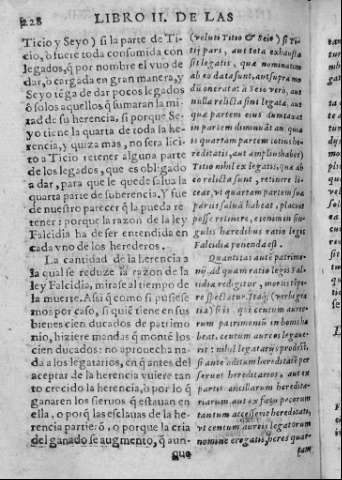 228 LIBRO II. DE LAS
Ticio y Seyo) si la parte de Ti-
cio, o fuere toda consumida con
legados, q̃ por nombre el vuo de
dar, o cargada en gran manera, y
Seyo tẽga de dar pocos legados
ò solos aquellos q̃ sumaran la mi-
tad de su herencia, si porque Se-
yo tiene la quarta de toda la he-
rencia, y quiza mas, no sera lici-
to a Ticio retener alguna parte
de los legados, que es obligado
a dar, para que le quede salua la
quarta parte de su herencia. Y fue
de nuestro parecer q̃ la pueda re-
tener: porque la razon de la ley
Falcidia ha de ser entendida en
cada vno de los herederos.
La cantidad de la herencia a
la qual se reduze la razon de la
ley Falcidia, mirase al tiempo de
la muerte. Asi q̃ como si pusiese
mos por caso, si quiẽ tiene en sus
bienes cien ducados de patrimo
nio, hiziere mandas q̃ monte los
cien ducados: no aprouecha na-
da a los legatarios, en q̃ antes del
aceptar de la herencia vuiere tan
to crecido la herencia, ò por lo q̃
ganaren los sieruos q̃ estauan en
ella, o porq̃ las esclauas de la he-
rencia partierõ, o porque la cria
del ganado se augmento, q̃ aun-
que
(veluti Titio & Seio) si Ti-
tij pars, aut tota exhausta
sit legatis, quæ nominatim
ab eo data sunt, aut supra mo
dũ onerata: à Seio verò, aut
nulla relicta sint legata, aut
quæ partem eius duntaxat
in partem dimidiam minuãt: an quia
is quartam partem totius hæ-
reditatis, aut amplius habet:
Titio nihil ex legatis, quæ ab
eo relicta sunt, retinere li-
ceat, vt quartam partem suæ
partis saluã habeat, placuit
posse retinere, etenim in sin-
gulis hæredibus ratio legis
Falcidiæ ponenda est.
Quantitas autẽ patrimo-
nij, ad quam ratio legis Fal-
cidiæ redigitur, mortis tẽpo-
re spectatur. Itaq; (verbi gra
tia) si is, qui centum aureo-
rum patrimoniũ in bonis ha
beat, centum aureos legaue-
rit: nihil legatarijs prodest,
si ante aditam hæreditatẽ per
seruos hæreditarios, aut ex
partu ancillarum hæredita-
riarum, aut ex fœtu pecorum
tantum accesserit hæreditati,
vt centum aureis legatorum
nomine erogatis, hæres quar-
tam